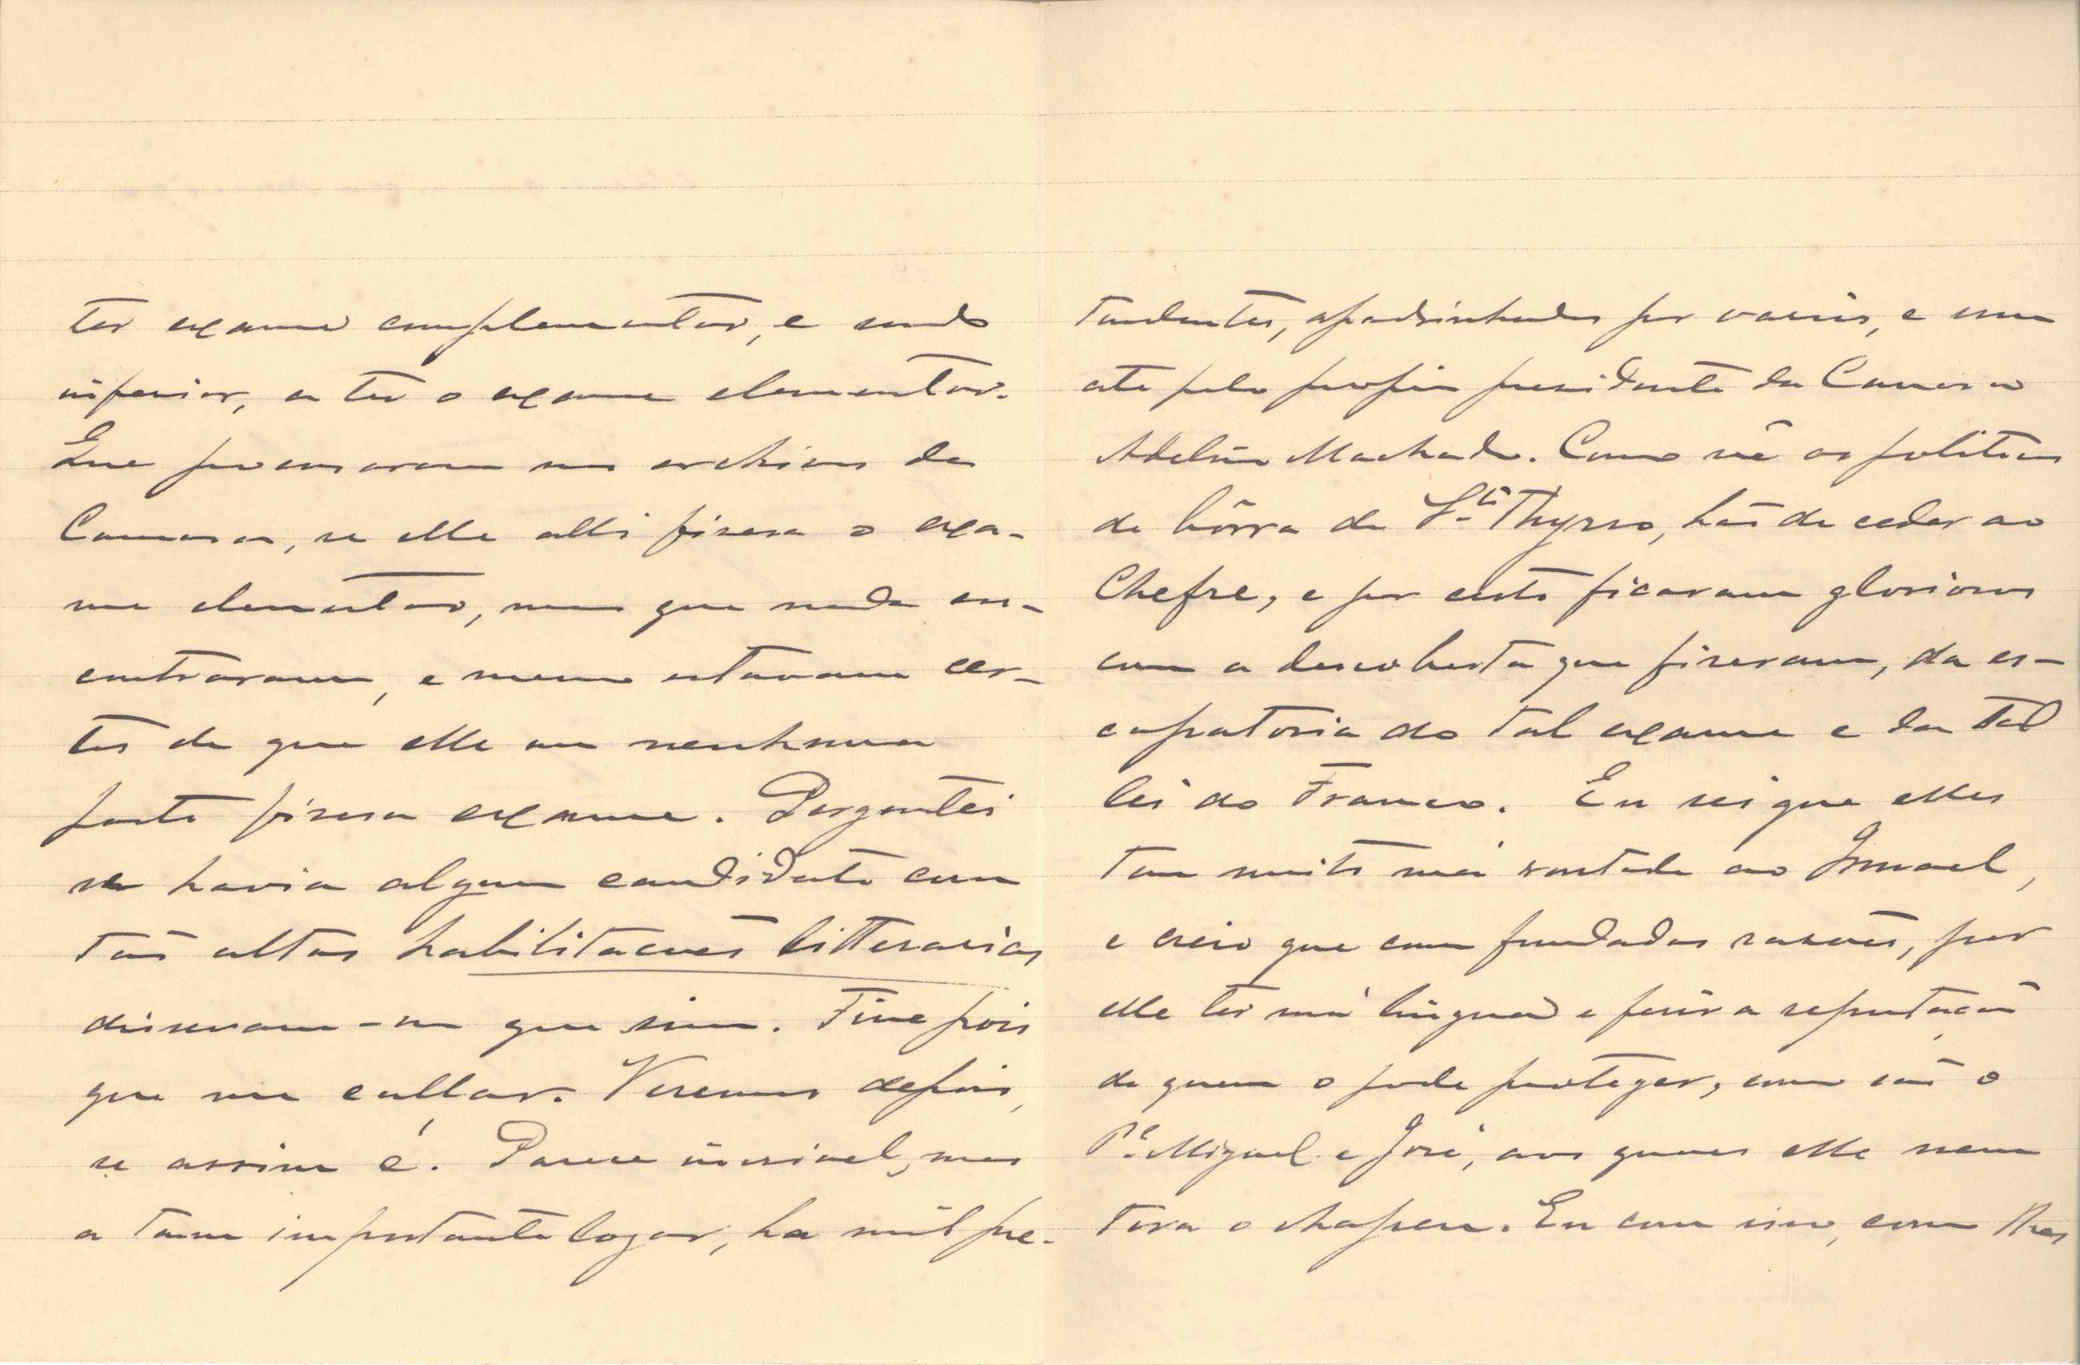 ter exame complementar, e sendo
inferior, a ter o exame elementar.
Que procuraram nos archivos da
Camara, se elle alli fizera o exa-
me elementar, mas que nada en-
contraram, e mesmo estavam cer-
tos de que elle em nenhuma
parte fizera exame. Perguntei
se havia algum candidato com
tão altas habilitações litterarias
disseram-me que sim. Tive pois
que me callar. Veremos depois,
se assim é. Parece incrivel, mas
a tam importante logar, ha mil pre-
tendentes, apadrinhados por varios, e um
até pelo proprio presidente da Camara
Adelino Machado. Como vê os politicos
de bôrra de S.to Thyrso, hão de ceder ao
Chefre, e por isto ficaram gloriosos
com a descoberta que fizeram, da es-
capatoria do tal exame e da tal
lei do Franco. Eu sei que elles
tem muito má vontade ao Ismael,
e creio que com fundadas rasões, por
elle ter má lingua e ferir a reputação
de quem o pode proteger, como são o
P.e Miguel e José, aos quaes elle nem
tira o chapeu. Eu com isso, com